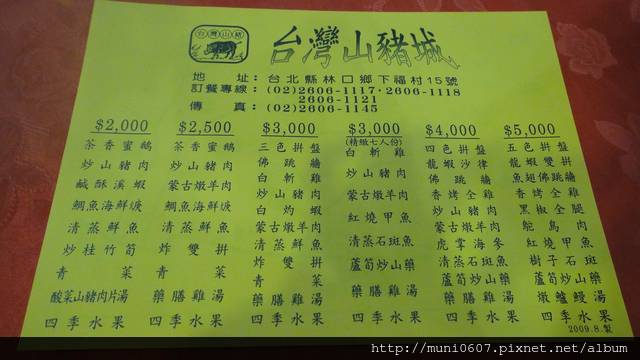 台灣山豬
台灣山豬城
地　　址：台北縣林口鄉下福村15號
訂餐專線：(02)2606-1117·2606-1118
2606-1121
傳　　真：(02)2606-1145
$2,000
茶香蜜鵝
炒山豬肉
鹹酥溪蝦
鯛魚海鮮焿
清蒸鮮魚
炒桂竹筍
青菜
酸菜山豬肉片湯
四季水果
$2,500
茶香蜜鵝
炒山豬肉
蒙古燉羊肉
鯛魚海鮮焿
清蒸鮮魚
炸雙拼
青菜
藥膳雞湯
四季水果
$3,000
三色拼盤
佛跳牆
炒山豬肉
白灼蝦
蒙古燉羊肉
清蒸鮮魚
炸雙拼
青菜
藥膳雞湯
四季水果
$3,000
(精緻七人份)
白斬雞
炒山豬肉
蒙古燉羊肉
紅燒甲魚
清蒸石斑魚
蘆筍炒山藥
藥膳雞湯
四季水果
$4,000
四色拼盤
龍蝦沙律
佛跳牆
香烤全雞
炒山豬肉
蒙古燉羊肉
虎掌海參
清蒸石斑魚
蘆筍炒山藥
藥膳雞湯
四季水果
$5,000
五色拼盤
龍蝦雙拼
魚翅佛跳牆
香烤全雞
黑椒全腿
鴕鳥肉
紅燒甲魚
樹子石斑
蘆筍炒山藥
燉鱸鰻湯
四季水果
2009.8.製
http://muni0607.pixnet.net/album